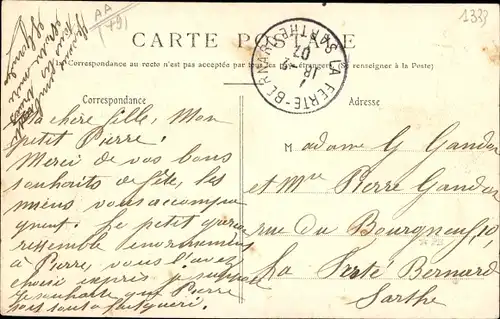 1333
AA
(79)
CARTE POSTALE
Correspondance au recto n'est pas acceptée par tous les pays étrangers. (Se renseigner à la Poste)
LA FERTÉ-BERNARD
SARTHE
07
Correspondance
Adresse
Ma chère fille, Mon
petit Pierre!
Merci de vos bons
souhaits de fête, les
miens vous accompa
gnent. Le petit
ressemble énormément
à Pierre, vous l'avez
choisi exprès je suppose
Je souhaite que Pierre
soit tout à fait guéri.
Madame G Gandon
et Mr Pierre Gandon
rue du Bourgneuf, 10,
La Ferté Bernard
Sarthe